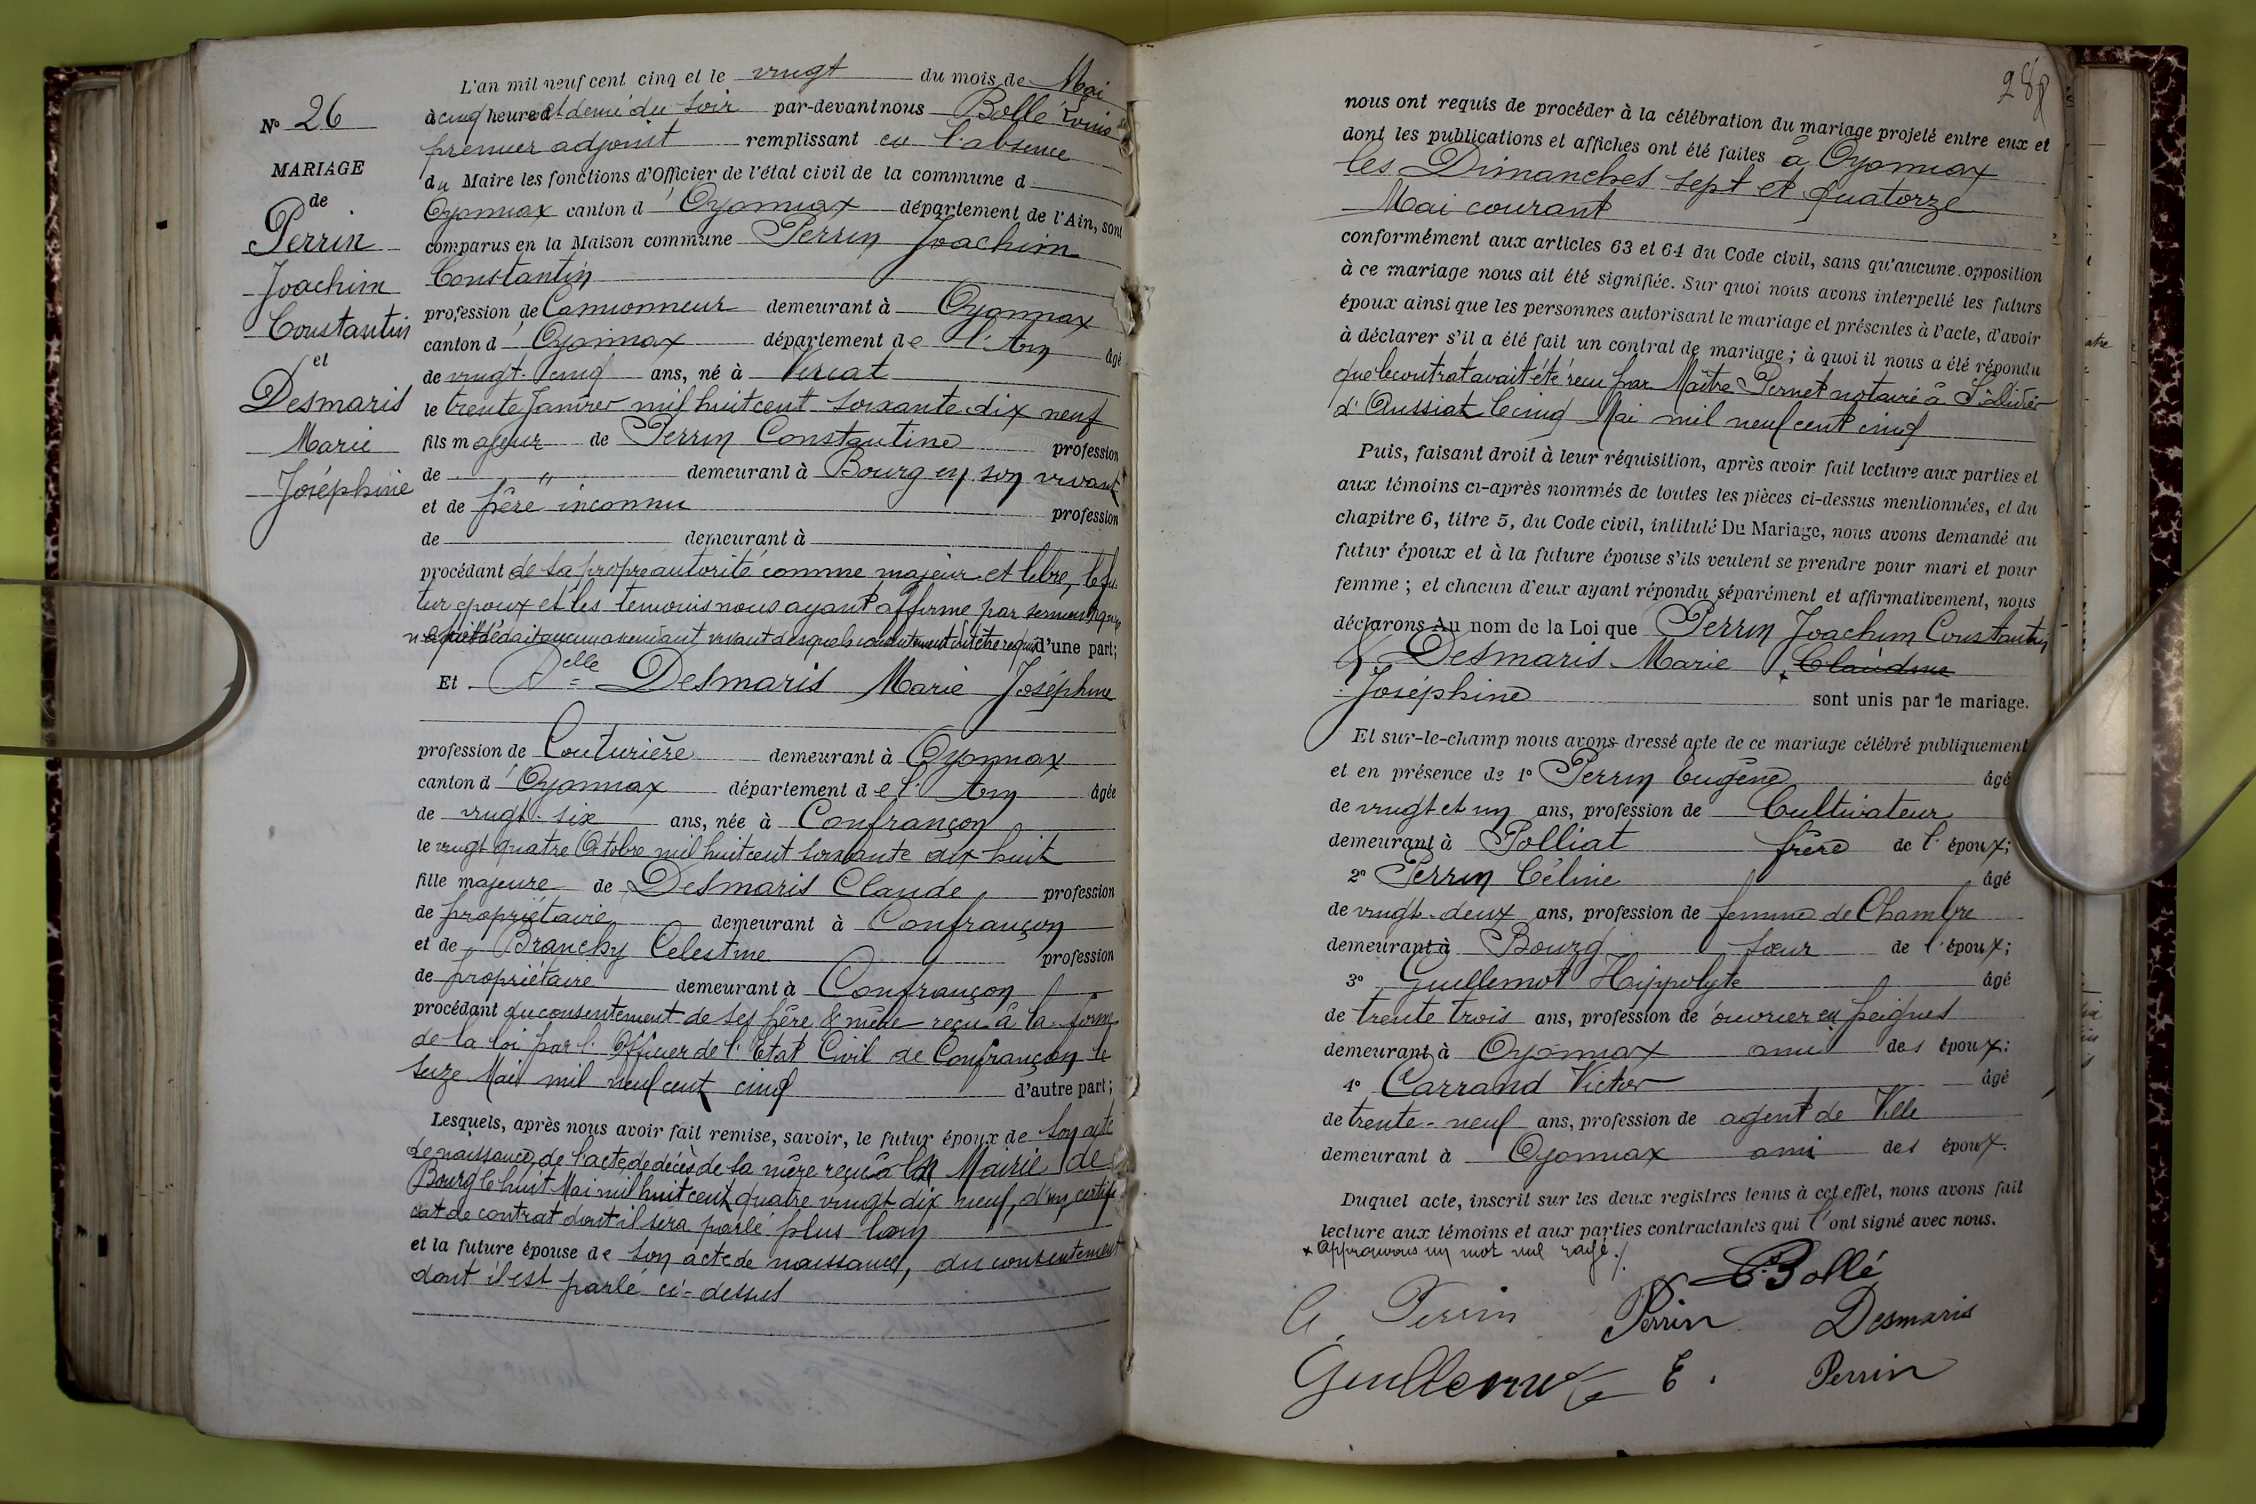 L'an mil neuf cent cinq et le vingt du mois de Mai
à cinq heures et demi du soir par-devant nous Bollé Louis
premier adjoint remplissant en l'absence
du Maire les fonctions d'Officier de l'état civil de la commune d
Oyonnax canton d'Oyonnax département de l'Ain, sont
comparus en la Maison commune Perrin Joachim
Constantin
profession de Camionneur demeurant à Oyonnax
canton d'Oyonnax département de l'Ain âgé
de vingt-cinq ans, né à Viriat
le trente Janvier mil huit cent soixante dix neuf
fils majeur de Perrin Constantine profession
de " demeurant à Bourg en son vivant
et de père inconnu profession
de demeurant à
procédant de sa propre autorité comme majeur et libre, le fu-
tur époux et les temoins nous ayant affirmé par serment que
aucun ascendant vivant desquels consentement dut être requis d'une part;
Et Delle Desmaris Marie Joséphine
profession de Couturière demeurant à Oyonnax
canton d'Oyonnax département de l'Ain âgée
de vingt-six ans, née à Confrançon
le vingt quatre Octobre mil huit cent soixante dix huit
fille majeure de Desmaris Claude profession
de propriétaire demeurant à Confrançon
et de Branchy Celestine profession
de propriétaire demeurant à Confrançon
procédant du consentement de ses père & mère reçu à la forme
de la loi par l'Officier de l'Etat Civil de Confrançon le
seize Mai mil neuf cent cinq d'autre part;
Lesquels, après nous avoir fait remise, savoir, le futur époux de son acte
de naissance, de l'acte de décès de sa mère reçu à la Mairie de
Bourg le huit Mai mil huit cent quatre vingt dix neuf, d'un certifi-
cat de contrat dont il sera parlé plus loin
et la future épouse de son acte de naissance, du consentement
dont il est parlé ci-dessus
N° 26
MARIAGE
de
Perrin
Joachim
Constantin
et
Desmaris
Marie
Joséphine
288
nous ont requis de procéder à la célébration du mariage projeté entre eux et
dont les publications et affiches ont été faites à Oyonnax
les Dimanches sept et quatorze
Mai courant
conformément aux articles 63 et 64 du Code civil, sans qu'aucune opposition
à ce mariage nous ait été signifiée. Sur quoi nous avons interpellé les futurs
époux ainsi que les personnes autorisant le mariage et présentes à l'acte, d'avoir
à déclarer s'il a été fait un contrat de mariage; à quoi il nous a été répondu
que le contrat avait été reçu par Maître Pernet notaire à St Didier
d'Aussiat le cinq Mai mil neuf cent cinq
Puis, faisant droit à leur réquisition, après avoir fait lecture aux parties et
aux témoins ci-après nommés de toutes les pièces ci-dessus mentionnées, et du
chapitre 6, titre 5, du Code civil, intitulé Du Mariage, nous avons demandé au
futur époux et à la future épouse s'ils veulent se prendre pour mari et pour
femme; et chacun d'eux ayant répondu séparément et affirmativement, nous
déclarons Au nom de la Loi que Perrin Joachim Constantin
& Desmaris Marie Claudine
Joséphine sont unis par le mariage.
Et sur-le-champ nous avons dressé acte de ce mariage célébré publiquement
et en présence de 1° Perrin Eugène âgé
de vingt et un ans, profession de Cultivateur
demeurant à Polliat frère de l'époux;
2° Perrin Céline âgé
de vingt-deux ans, profession de femme de Chambre
demeurant à Bourg sœur de l'époux;
3° Guillemot Hippolyte âgé
de trente trois ans, profession de ouvrier en peignes
demeurant à Oyonnax ami des époux;
4° Carrand Victor âgé
de trente-neuf ans, profession de agent de Ville
demeurant à Oyonnax ami des époux.
Duquel acte, inscrit sur les deux registres tenus à cet effet, nous avons fait
lecture aux témoins et aux parties contractantes qui l'ont signé avec nous.
x Approuvons un mot nul rayé ./.
Bollé
C. Perrin Perrin Desmaris
Guillemot E. Perrin